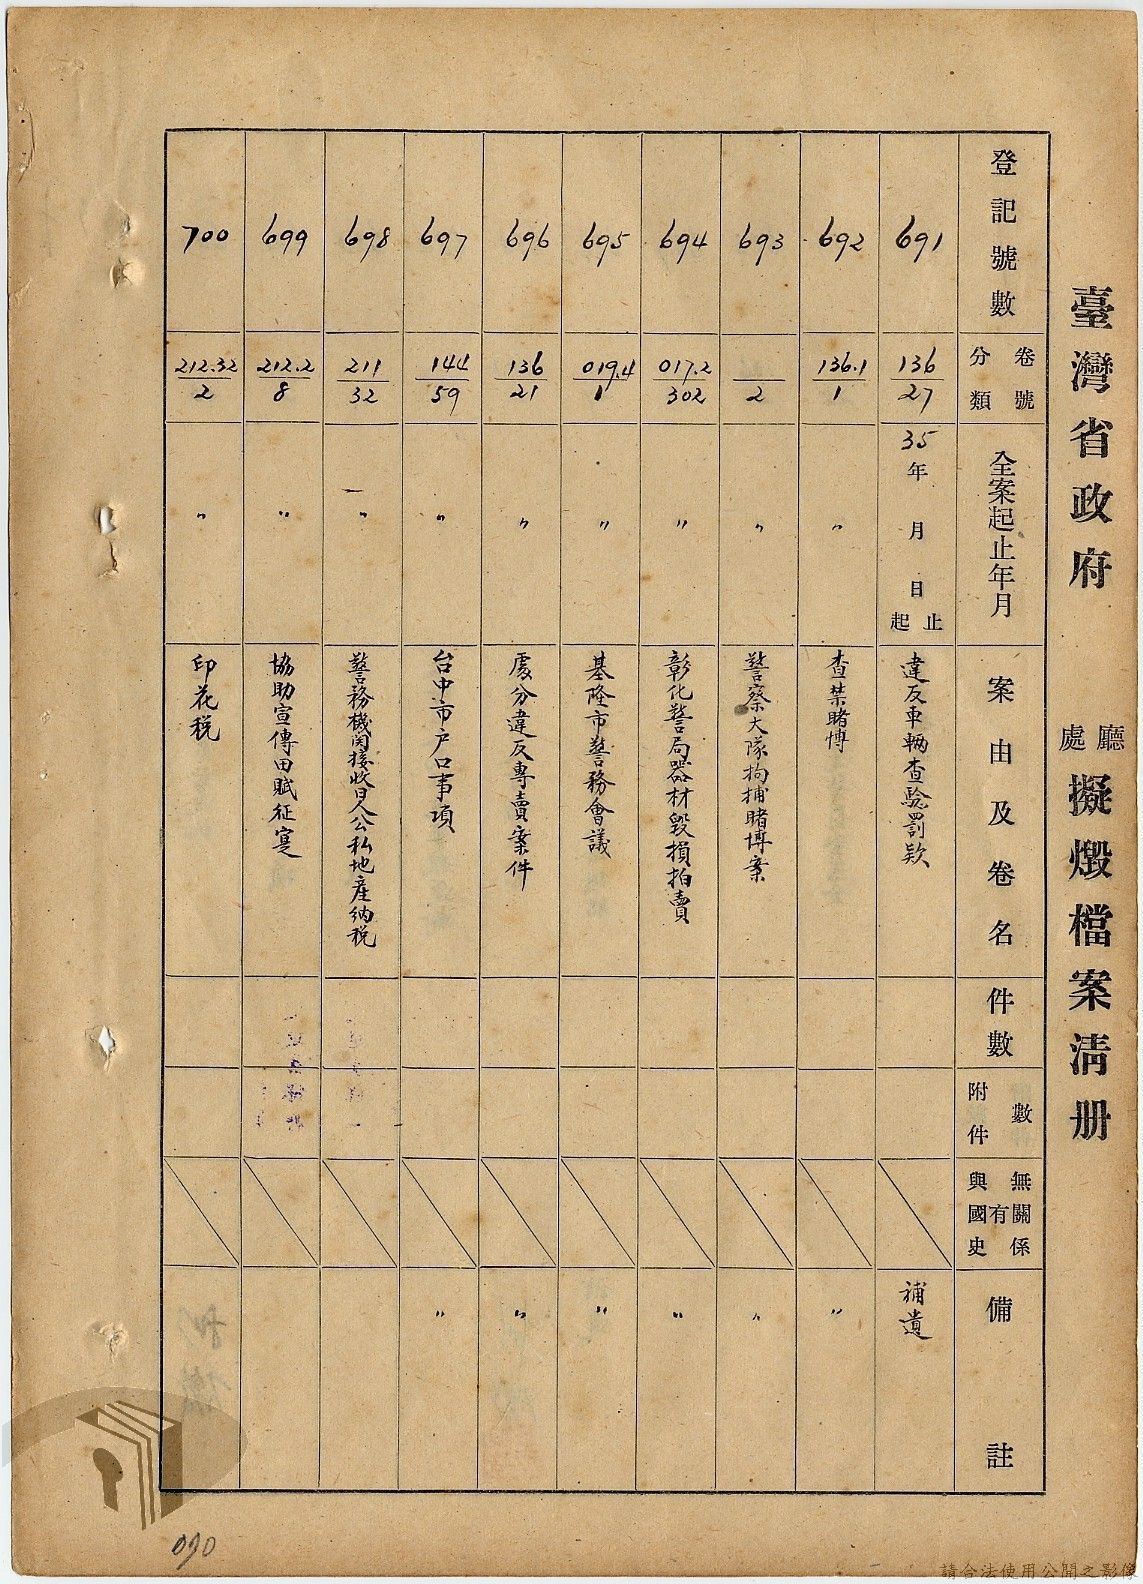 臺灣省政府 廳處 擬燬檔案清册
登記號數
分類 卷號
全案起止年月
案由及卷名
件數
附件數
與國史有無關係
備註
691
136/27
35年 月 日 起止
違反車輛查驗罰款
補遺
692
136.1/1
〃
查禁賭博
〃
693
/2
〃
警察大隊拘捕賭博案
〃
694
017.2/302
〃
彰化警局器材毀損拍賣
〃
695
019.4/1
〃
基隆市警務會議
〃
696
136/21
〃
處分違反專賣案件
〃
697
144/59
〃
台中市户口事項
〃
698
211/32
〃
警務機関接收日人公私地產納税
699
212.2/8
〃
協助宣傳田賦征寔
700
212.32/2
〃
印花税
090
請合法使用公開之影像